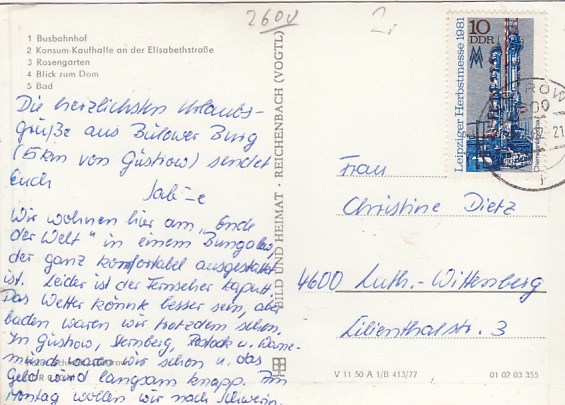 1 Busbahnhof
2 Konsum-Kaufhalle an der Elisabethstraße
3 Rosengarten
4 Blick zum Dom
5 Bad
Die herzlichsten Urlaubs-
grüße aus Bülower Burg
(5km von Güstrow) sendet
Euch
Sabine
Wir wohnen hier am „Ende
der Welt" in einem Bungalow,
der ganz komfortabel ausgestattet
ist. Leider ist der Fernseher kaputt.
Das Wetter könnte besser sein, aber
baden waren wir trotzdem schon.
In Güstrow, Sternberg, Rostock u. Warne-
münde waren wir schon u. das
Geld wird langsam knapp. Im
Montag wollen wir nach Schwerin.
BILD UND HEIMAT · REICHENBACH (VOGTL)
2600
10
DDR
Leipziger Herbstmesse 1981
Frau
Christine Dietz
4600 Luth.-Wittenberg
Lilienthalstr. 3
V 11 50 A 1/B 413/77
01 02 03 355